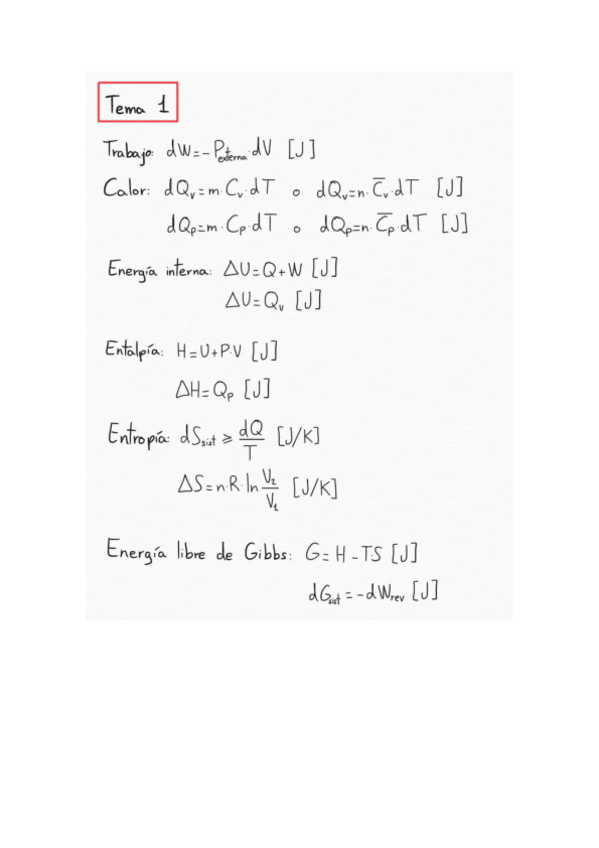 Tema 1
Trabajo: dW=-P_externa·dV [J]
Calor: dQ_v=m·C_v·dT o dQ_v=n·C̅_v·dT [J]
dQ_p=m·C_p·dT o dQ_p=n·C̅_p·dT [J]
Energía interna: ΔU=Q+W [J]
ΔU=Q_v [J]
Entalpía: H=U+P·V [J]
ΔH=Q_p [J]
Entropía: dS_sist ≥ dQ/T [J/K]
ΔS=n·R·ln V_2/V_1 [J/K]
Energía libre de Gibbs: G=H-T·S [J]
dG_sist=-dW_rev [J]